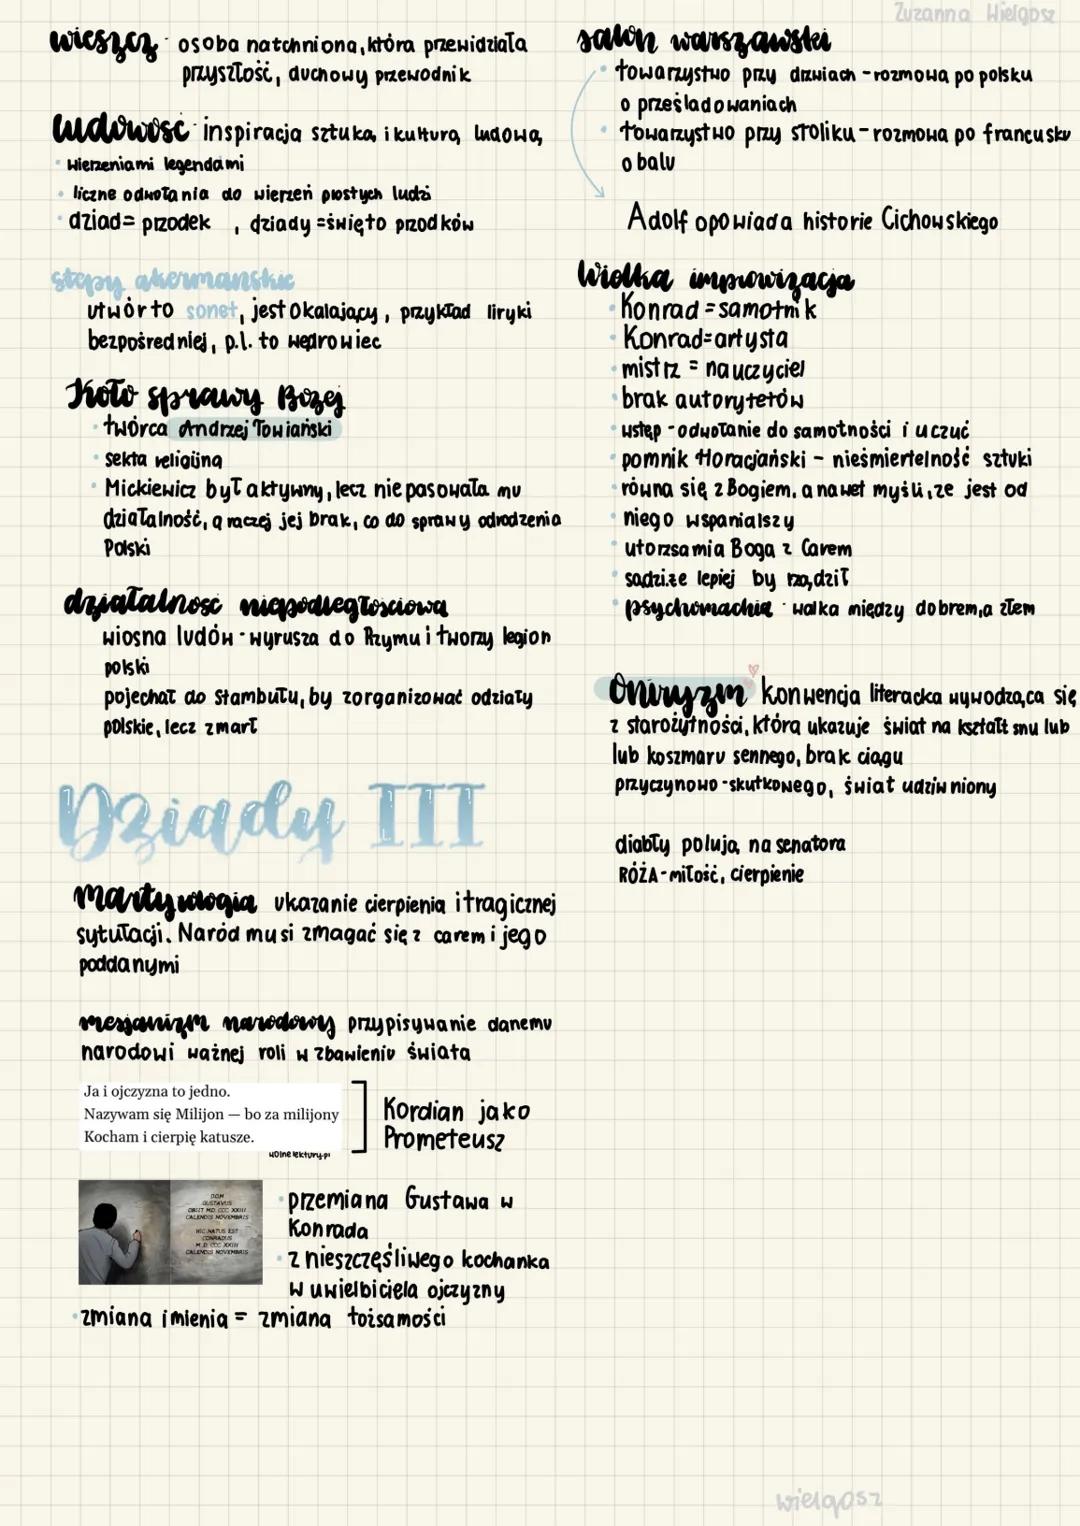 Zuzanna Wielgosz
wieszcz - osoba natchniona, która przewidziała
przyszłość, duchowy przewodnik
ludowość - inspiracja sztuką i kulturą ludową,
wierzeniami legendami
liczne odwołania do wierzeń prostych ludzi
dziad= przodek , dziady =święto przodków
stepy akermańskie
utwór to sonet, jest okalający, przykład liryki
bezpośredniej, p.l. to wędrowiec
Koło sprawy Bożej
twórca Andrzej Towiański
sekta religijna
Mickiewicz był aktywny, lecz nie pasowała mu
działalność, a raczej jej brak, co do sprawy odrodzenia
Polski
działalność niepodległościowa
wiosna ludów - wyrusza do Rzymu i tworzy legion
polski
pojechał do Stambułu, by zorganizować odziały
polskie, lecz zmarł
Dziady III
martyrologia ukazanie cierpienia i tragicznej
sytułacji. Naród musi zmagać się z carem i jego
poddanymi
mesjanizm narodowy przypisywanie danemu
narodowi ważnej roli w zbawieniu świata
Ja i ojczyzna to jedno.
Nazywam się Milijon — bo za milijony
Kocham i cierpię katusze.
wolnelektury.pl
Kordian jako
Prometeusz
D.O.M
GUSTAVUS
OBIIT M.D. CCC XXIII
CALENDIS NOVEMBRIS
HIC NATUS EST
CONRADUS
M.D. CCC XXIII
CALENDIS NOVEMBRIS
przemiana Gustawa w
Konrada
z nieszczęśliwego kochanka
w uwielbiciela ojczyzny
zmiana imienia = zmiana tożsamości
salon warszawski
towarzystwo przy drzwiach - rozmowa po polsku
o prześladowaniach
towarzystwo przy stoliku - rozmowa po francusku
o balu
Adolf opowiada historie Cichowskiego
Wielka improwizacja
Konrad = samotnik
Konrad=artysta
mistrz = nauczyciel
brak autorytetów
wstęp - odwołanie do samotności i uczuć
pomnik Horacjański - nieśmiertelność sztuki
równa się z Bogiem, a nawet myśli, że jest od
niego wspanialszy
utorzsamia Boga z Carem
sądzi, że lepiej by rządził
psychomachia - walka między dobrem, a złem
Oniryzm konwencja literacka wywodząca się
z starożytności, która ukazuje świat na kształt snu lub
lub koszmaru sennego, brak ciągu
przyczynowo-skutkowego, świat udziwniony
diabły polują na senatora
RÓŻA - miłość, cierpienie
wielgosz